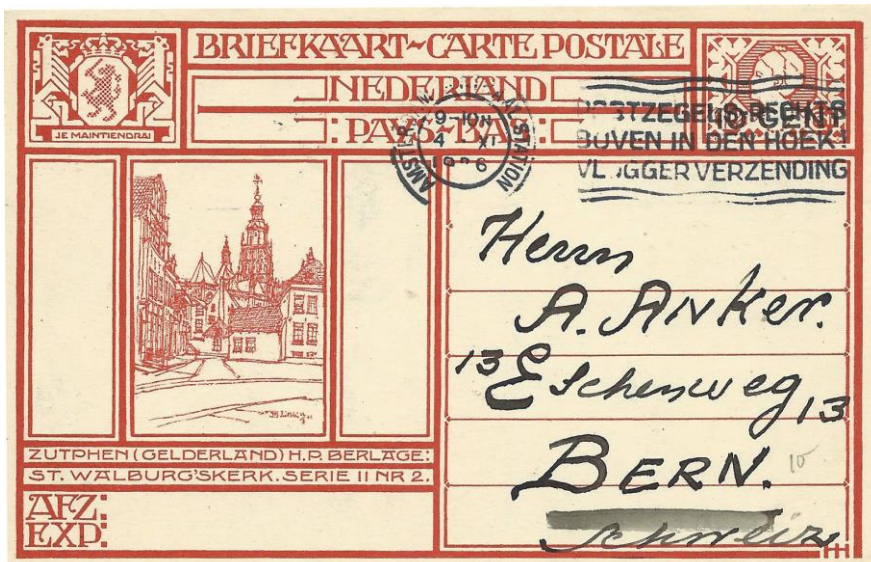 BRIEFKAART~CARTE POSTALE
NEDERLAND
PAYS~BAS
JE MAINTIENDRAI
10 CENT
AMSTERDAM CENTRAAL STATION
9-10N
4 XI
POSTZEGELS RECHTS
BOVEN IN DEN HOEK!
VLUGGER VERZENDING
Herrn
A. Anker.
13 Eschenweg 13
BERN.
10
Schweiz
ZUTPHEN (GELDERLAND) H.P. BERLAGE:
ST. WALBURG'SKERK. SERIE II NR 2.
AFZ:
EXP: